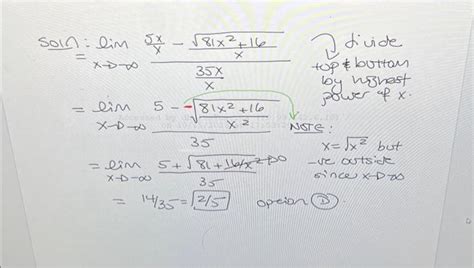 Soln: lim 5x/x - √(81x² + 16)/x
x→-∞ 35x/x
divide
top & bottom
by highest
power of x.
= lim 5 - -√((81x² + 16)/x²)
x→-∞ 35
NOTE:
x = √x² but
-ve outside
since x→-∞
= lim 5 + √(81 + 16/x²) →0
x→-∞ 35
= 14/35 = 2/5 option D.